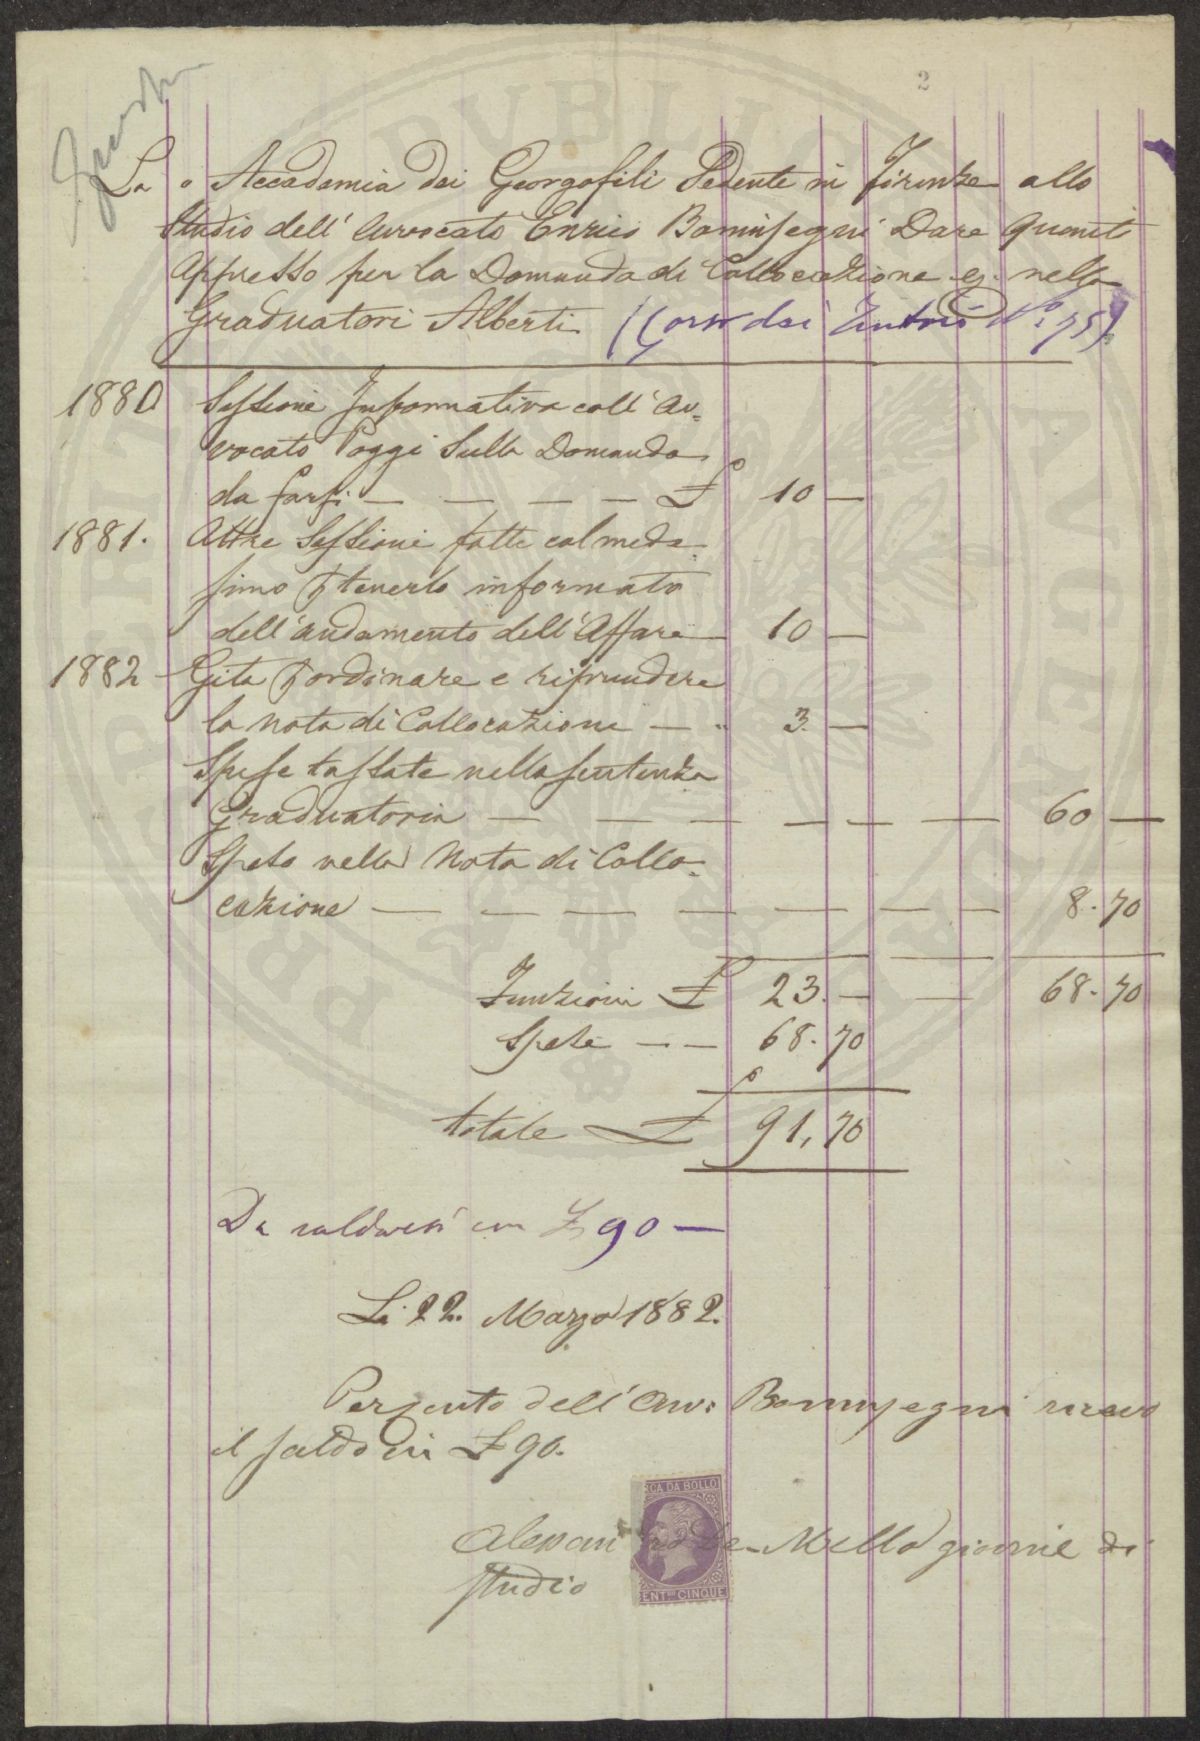 2
La Accademia dei Georgofili Sedente in Firenze allo
Studio dell' Avvocato Enrico Boninsegni Dare quanto
appresso per la Domanda di Collocazione nella
Graduatori Alberti (Corso dei Tintori N°: 75)
1880 Sessione Informativa coll' Av=
vocato Poggi Sulla Domanda
da farsi — — — — £ 10 —
1881. Altre Sessioni fatte col mede
simo p tenerlo informato
dell' andamento dell' Affare — 10 —
1882 Gita p ordinare e riprendere
la nota di Collocazione — " 3. —
Spese tassate nella sentenza
Graduatoria — — — — — — 60 —
Spese nella Nota di Collo=
cazione — — — — — — — 8.70
Funzioni £ 23. — — 68.70
Spese — — 68.70
totale £ 91,70
Da saldarsi con £ 90 —
Li 22. Marzo 1882.
Per conto dell' Avv: Boninsegni ricevo
il saldo in £ 90.
MARCA DA BOLLO
Alessandro De-Mello giovine di
studio
CENT.MI CINQUE